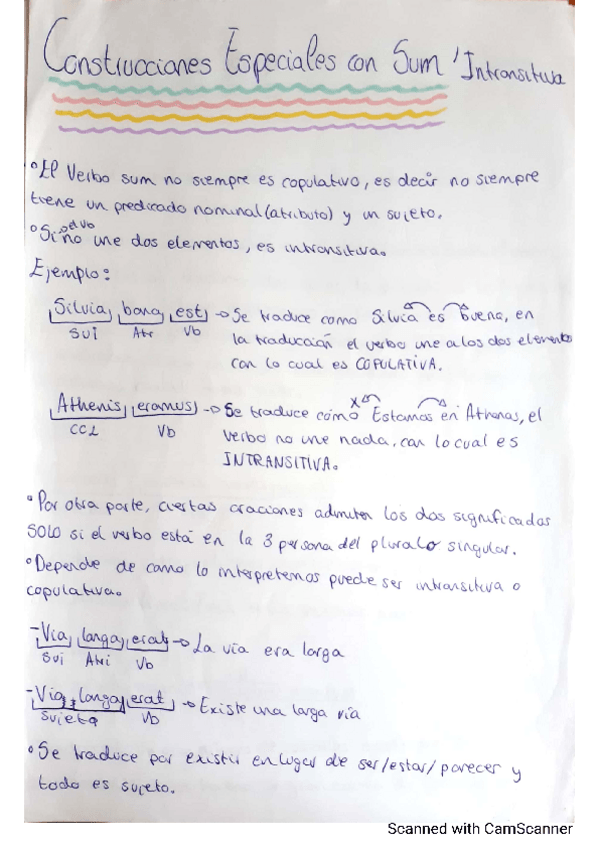 Construcciones Especiales con Sum / Intransitiva
°El Verbo sum no siempre es copulativo, es decir no siempre
tiene un predicado nominal (atributo) y un sujeto.
°Si no el vb une dos elementos, es intransitiva.
Ejemplo:
Silvia, bona, est → Se traduce como Silvia es buena, en
SUJ Atr Vb la traducción el verbo une a los dos elementos
con lo cual es COPULATIVA.
Athenis, eramus → Se traduce como x Estamos en Athenas, el
CCL Vb verbo no une nada, con lo cual es
INTRANSITIVA.
°Por otra parte, ciertas oraciones admiten los dos significados
SOLO si el verbo está en la 3 persona del plural o singular.
°Depende de como lo interpretemos puede ser intransitiva o
copulativa.
-Via, longa, erat → La vía era larga
Suj Atri Vb
-Via, longa, erat → Existe una larga vía
Sujeto Vb
°Se traduce por existir en lugar de ser/estar/parecer y
todo es sujeto.
Scanned with CamScanner